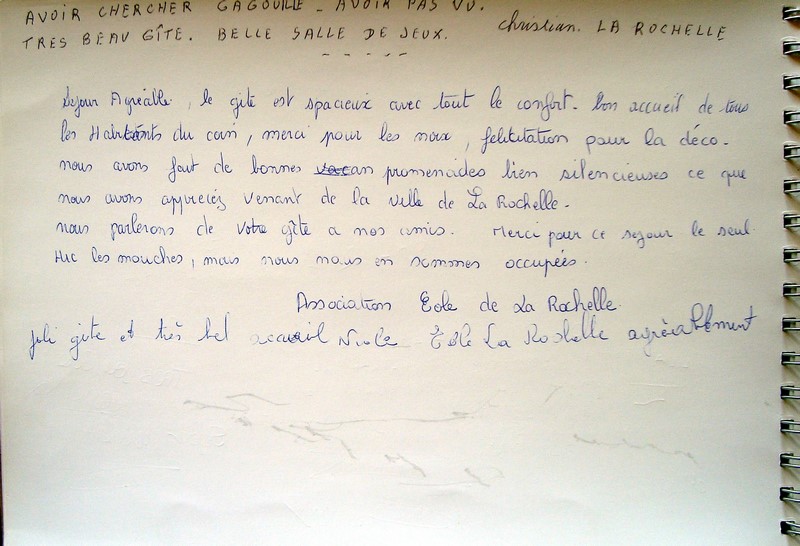 AVOIR CHERCHER GAGOUILLE - AVOIR PAS VU.
TRES BEAU GÎTE. BELLE SALLE DE JEUX. Christian. LA ROCHELLE
Sejour Agréable, le gîte est spacieux avec tout le confort. bon accueil de tous
les Habitants du coin, merci pour les noix, felicitation pour la déco.
nous avons fait de bonnes promenades bien silencieuses ce que
nous avons appreciés venant de la ville de La Rochelle.
nous parlerons de votre gîte a nos amis. Merci pour ce sejour le seul
Hic les mouches, mais nous nous en sommes occupées.
Association Eole de La Rochelle
Joli gite et très bel accueil Nicole Eole La Rochelle agréablement